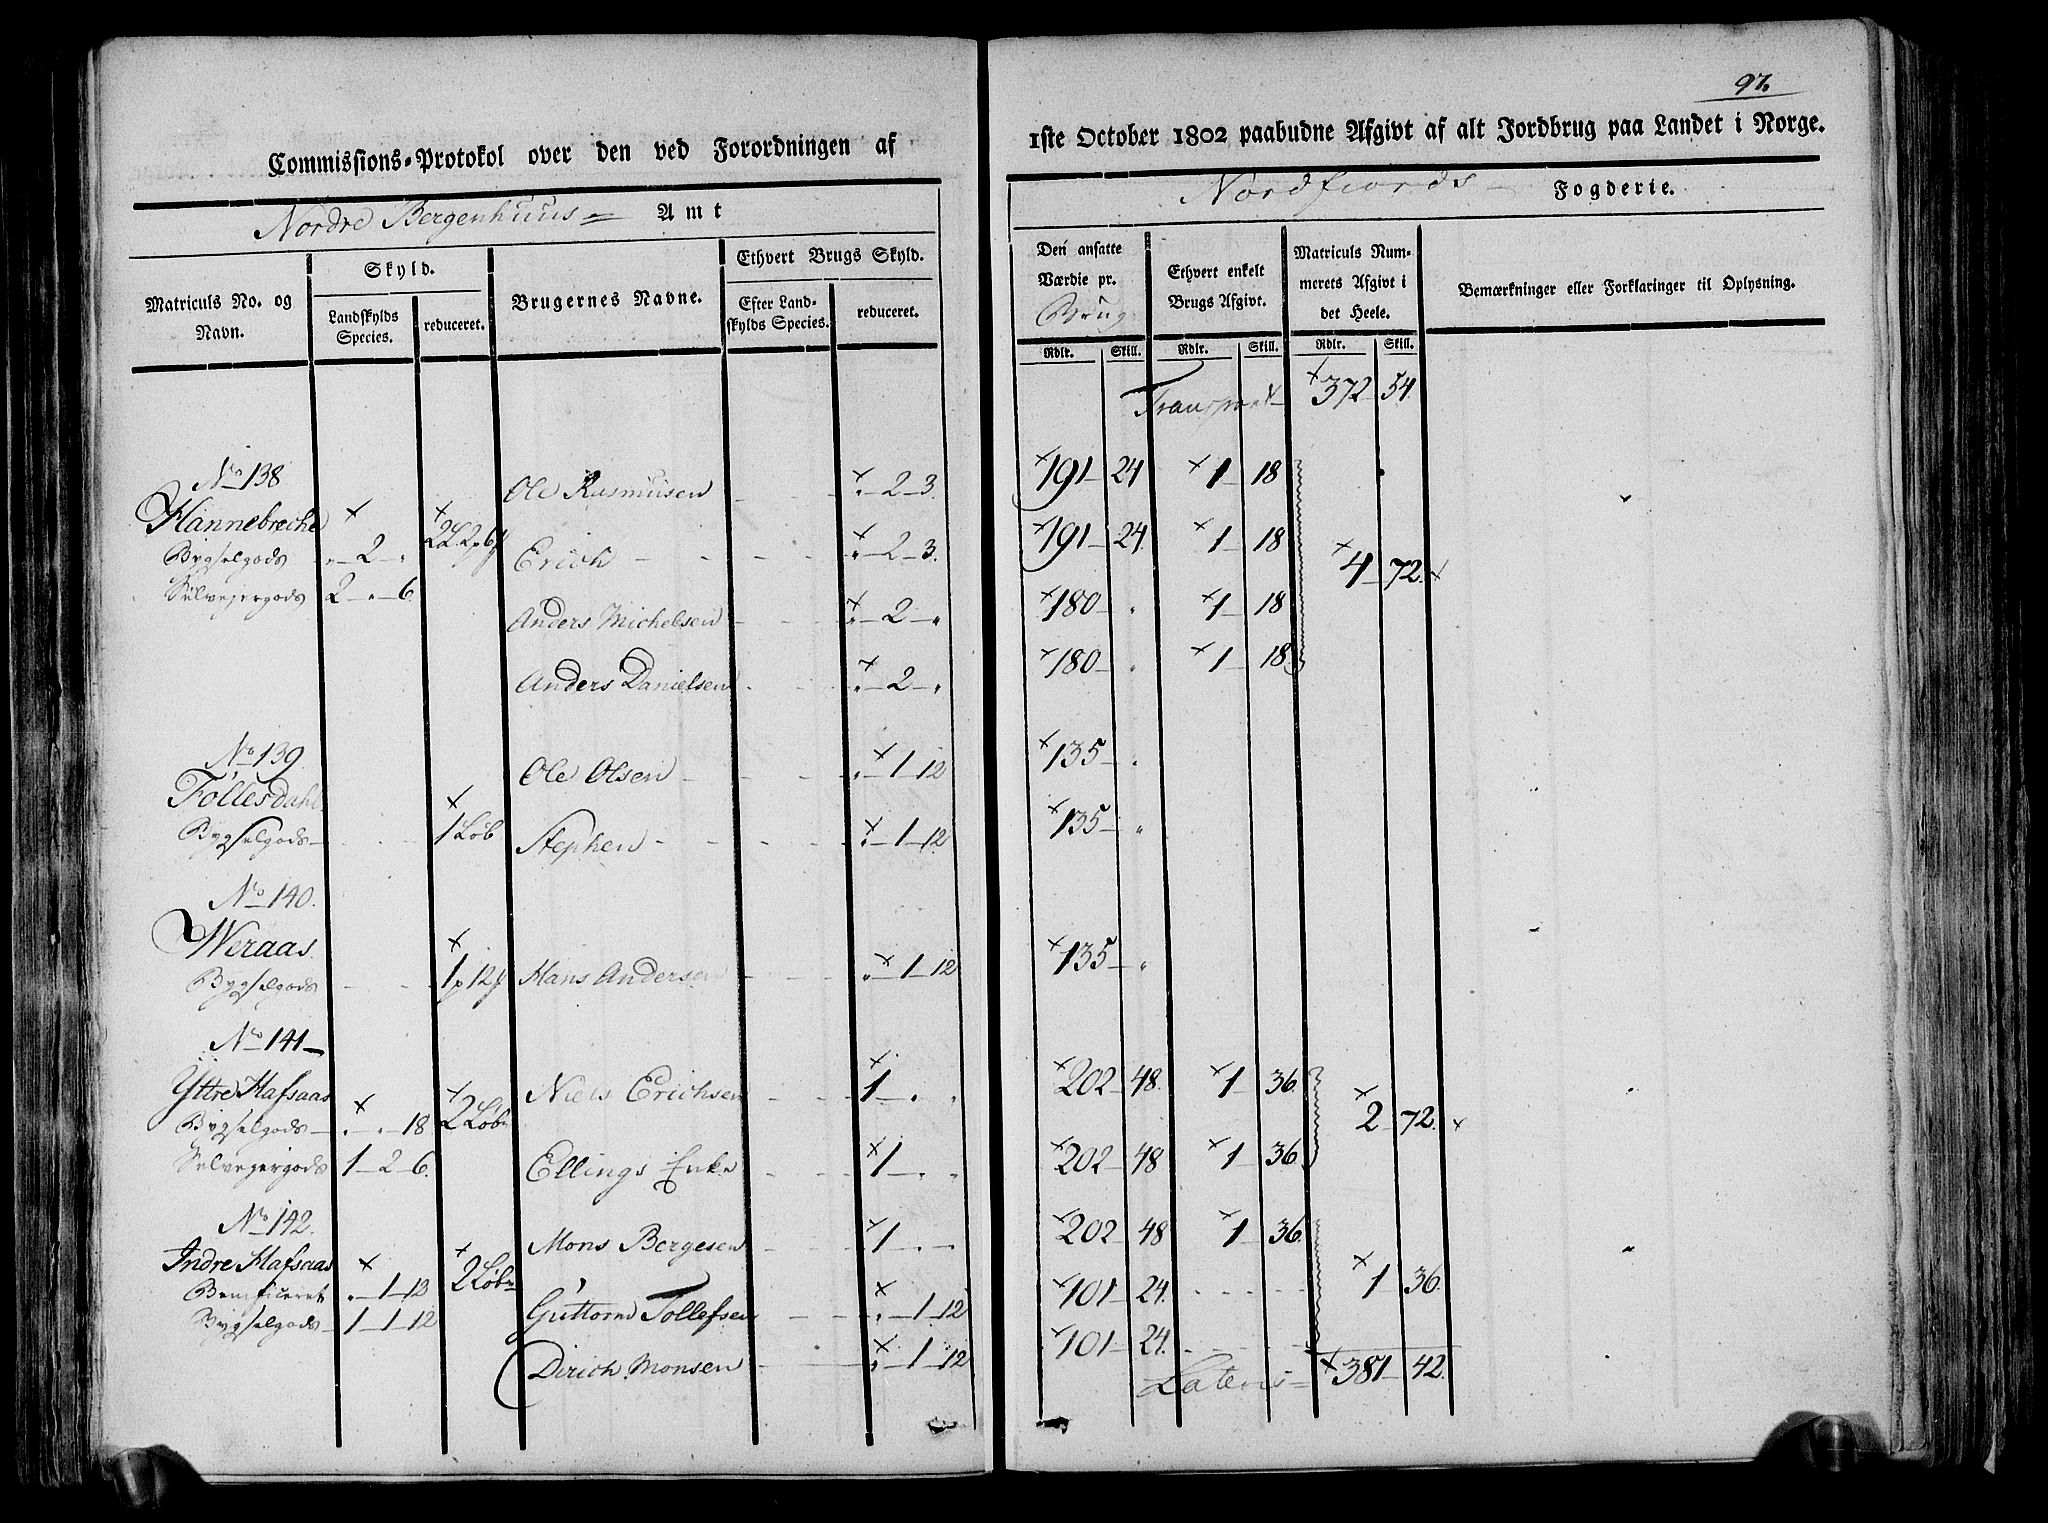 Commissions-Protokol over den ved Forordningen af
Nordre Bergenhuus Amt
Matriculs No. og Navn.
Skyld.
Landskylds Species.
reduceret.
Brugernes Navne.
Ethvert Brugs Skyld.
Efter Landskylds Species.
reduceret.
No 138
Hannebreche
Bygselgods „ 2 „
Selvejergods 2 „ 6.
Ole Rasmusen „ 2 3.
Erich „ 2 3.
Anders Michelsen „ 2 „
Anders Danielsen „ 2 „
No 139
Föllesdahl
Bygselgods 1 Løb
Ole Olsen „ 1 12
Stephen „ 1 12
No 140.
Weraas
Bygselgods
Hans Andersen „ 1 12
No 141
Yttre Hafsaas
Bygselgods „ „ 18 2 Løb
Selvejergods 1 2 6.
Niels Erichsen 1 „ „
Ellings Enke 1 „ „
No 142.
Indre Hafsaas 2 Løb
Beneficeret „ 1 12
Bygselgods 1 1 12
Mons Bergesen 1 „ „
Guttorm Tollefsen „ 1 12
Dirich Monsen „ 1 12
97.
1ste October 1802 paabudne Afgivt af alt Jordbrug paa Landet i Norge.
Nordfiords Fogderie.
Den ansatte Værdie pr. Brug
Ethvert enkelt Brugs Afgivt.
Matriculs Nummerets Afgivt i det Heele.
Bemærkninger eller Forklaringer til Oplysning.
Rdlr. Skill. Rdlr. Skill. Rdlr. Skill.
Transport 372 54.
191 24 1 18
191 24. 1 18
4 72.
180 „ 1 18
180 „ 1 18
135 „
135 „
135 „
202 48. 1 36.
2 72.
202 48 1 36
202 48 1 36.
101 24. 1 36.
101 24.
Lateris 381 42.